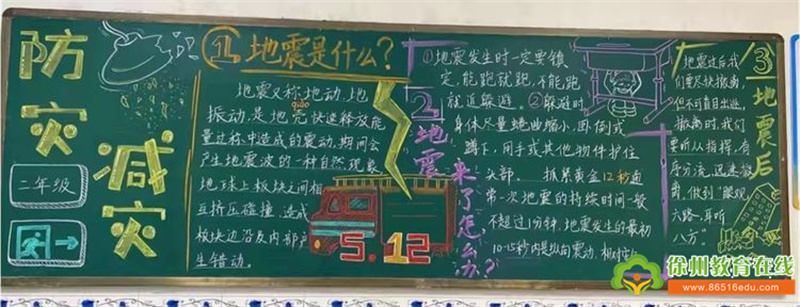 防灾
减灾
二年级
①地震是什么?
地震又称地动、地
振动,是地壳快速释放能
qiào
量过程中造成的震动,期间会
产生地震波的一种自然现象
地球上板块之间相
互挤压碰撞,造成
板块边沿及内部产
生错动。
5.12
2 地震来了怎么办?
①地震发生时一定要镇
定,能跑就跑,不能跑
就近躲避。②躲避时
身体尽量蜷曲缩小,卧倒或
蹲下,用手或其他物件护住
头部。 抓紧黄金12秒通
常一次地震的持续时间一般
不超过1分钟,地震发生的最初
10-15秒内是纵向震动,相对
③地震后
地震过后我
们要尽快撤离,
但不可盲目出逃,
撤离时我们
要听从指挥,有
序分流,迅速撤
离,做到“眼观
六路,耳听
八方”。
徐州教育在线
www.86516edu.com